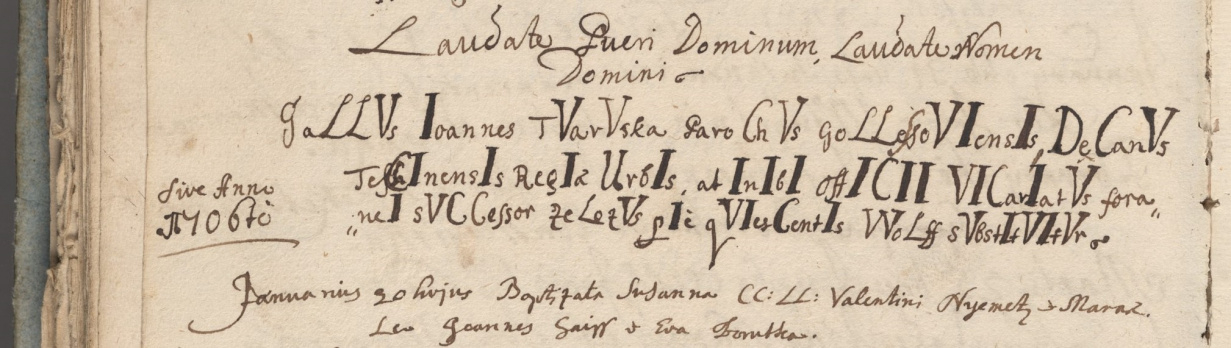 Laudate Pueri Dominum, Laudate Nomen
Domini
GaLLVs Ioannes TVarVska ParoChVs goLLessoVIensIs, DeCanVs
TesChInensIs RegIæ UrbIs, at InIbI offICII VICarIatVs fora„
Sive Anno
1706tô
„neI sVCCessor zeLezVs pIè qVIesCentIs VVoLff sVbstItVItVr
Januarius 20 hujus Baptizata Susanna CC: LL: Valentini Nyemetz & Maræ.
Lev Joannes Gaiss & Eva